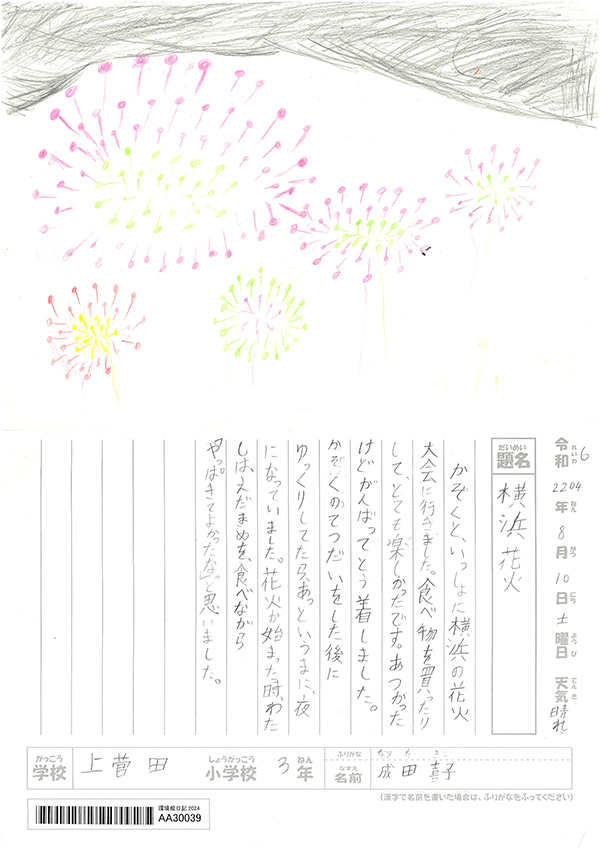 令和れいわ6
2204年ねん8月がつ10日にち土曜日ようび天気てんき晴れ
題名だいめい
横浜花火
かぞくと、いっしょに横浜の花火
大会に行きました。食べ物を買ったり
して、とても楽しかったです。あつかった
けどがんばってとう着しました。
かぞくのてつだいをした後に
ゆっくりしてたら、あっというまに、夜
になっていました。花火が始まった時、わた
しは、えだまめを、食べながら
「やっぱきてよかったな」と思いました。
学校がっこう 上菅田 小学校しょうがっこう 3年ねん
ふりがな なりた
名前なまえ 成田喜子
(漢字で名前を書いた場合は、ふりがなをふってください)
環境絵日記2024
AA30039